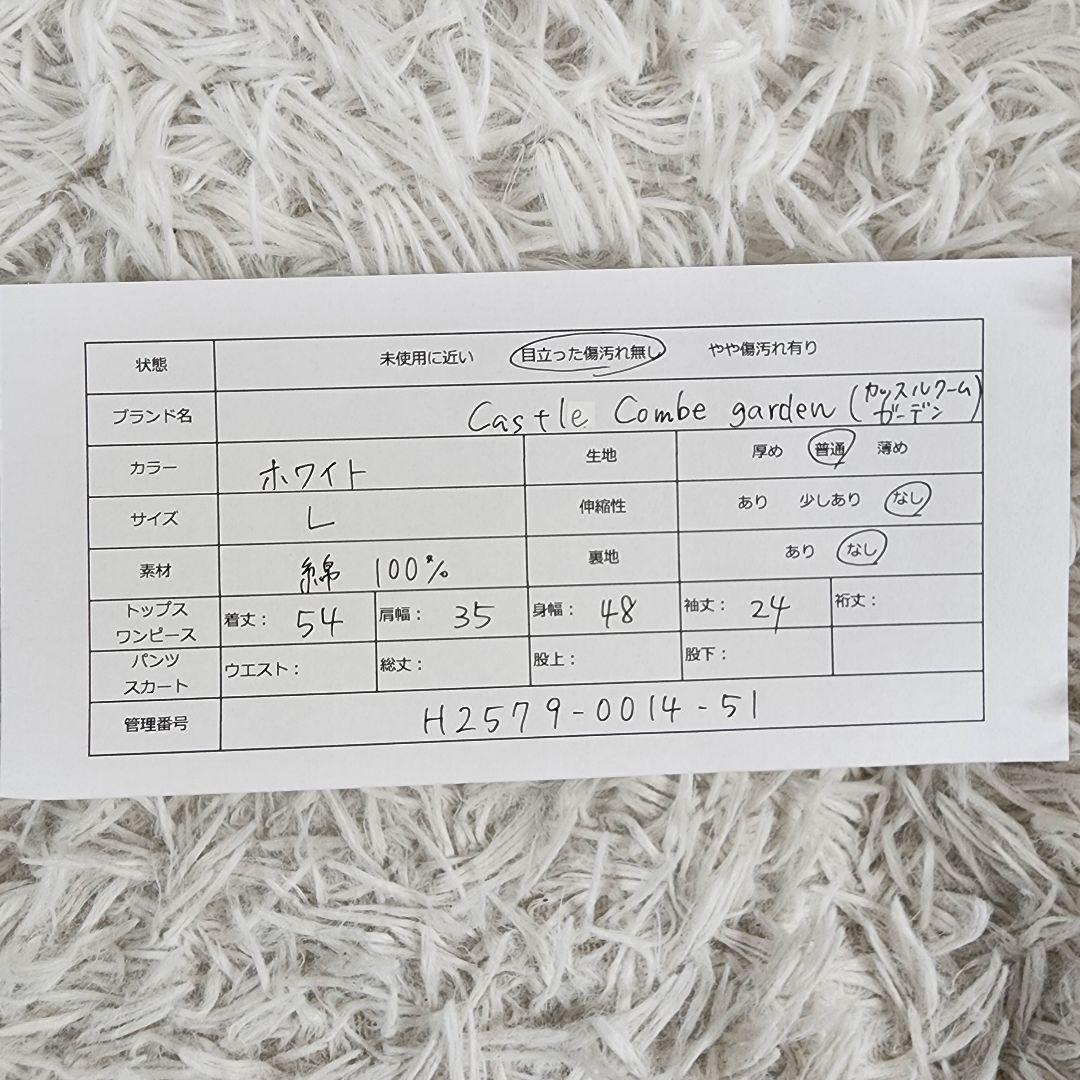 状態 未使用に近い 目立った傷汚れ無し やや傷汚れ有り
ブランド名 Castle Combe garden (カッスルクーム ガーデン)
カラー ホワイト 生地 厚め 普通 薄め
サイズ L 伸縮性 あり 少しあり なし
素材 綿 100% 裏地 あり なし
トップス
ワンピース 着丈: 54 肩幅: 35 身幅: 48 袖丈: 24 裄丈:
パンツ
スカート ウエスト: 総丈: 股上: 股下:
管理番号 H2579-0014-51